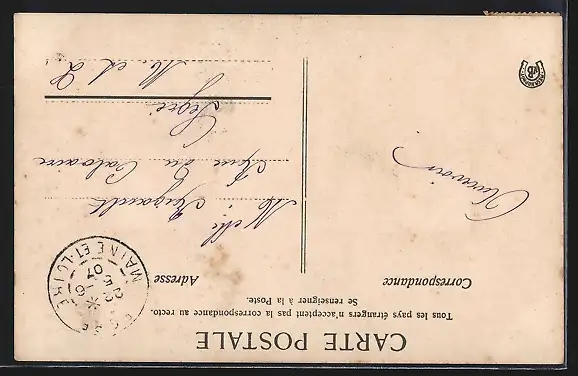 CARTE POSTALE
Tous les pays étrangers n'acceptent pas la correspondance au recto.
Se renseigner à la Poste.
Correspondance
Adresse
SEGRÉ
22 - 5
07
MAINE-ET-LOIRE
Melle
Rue du Calvaire
Segré
M. et L.